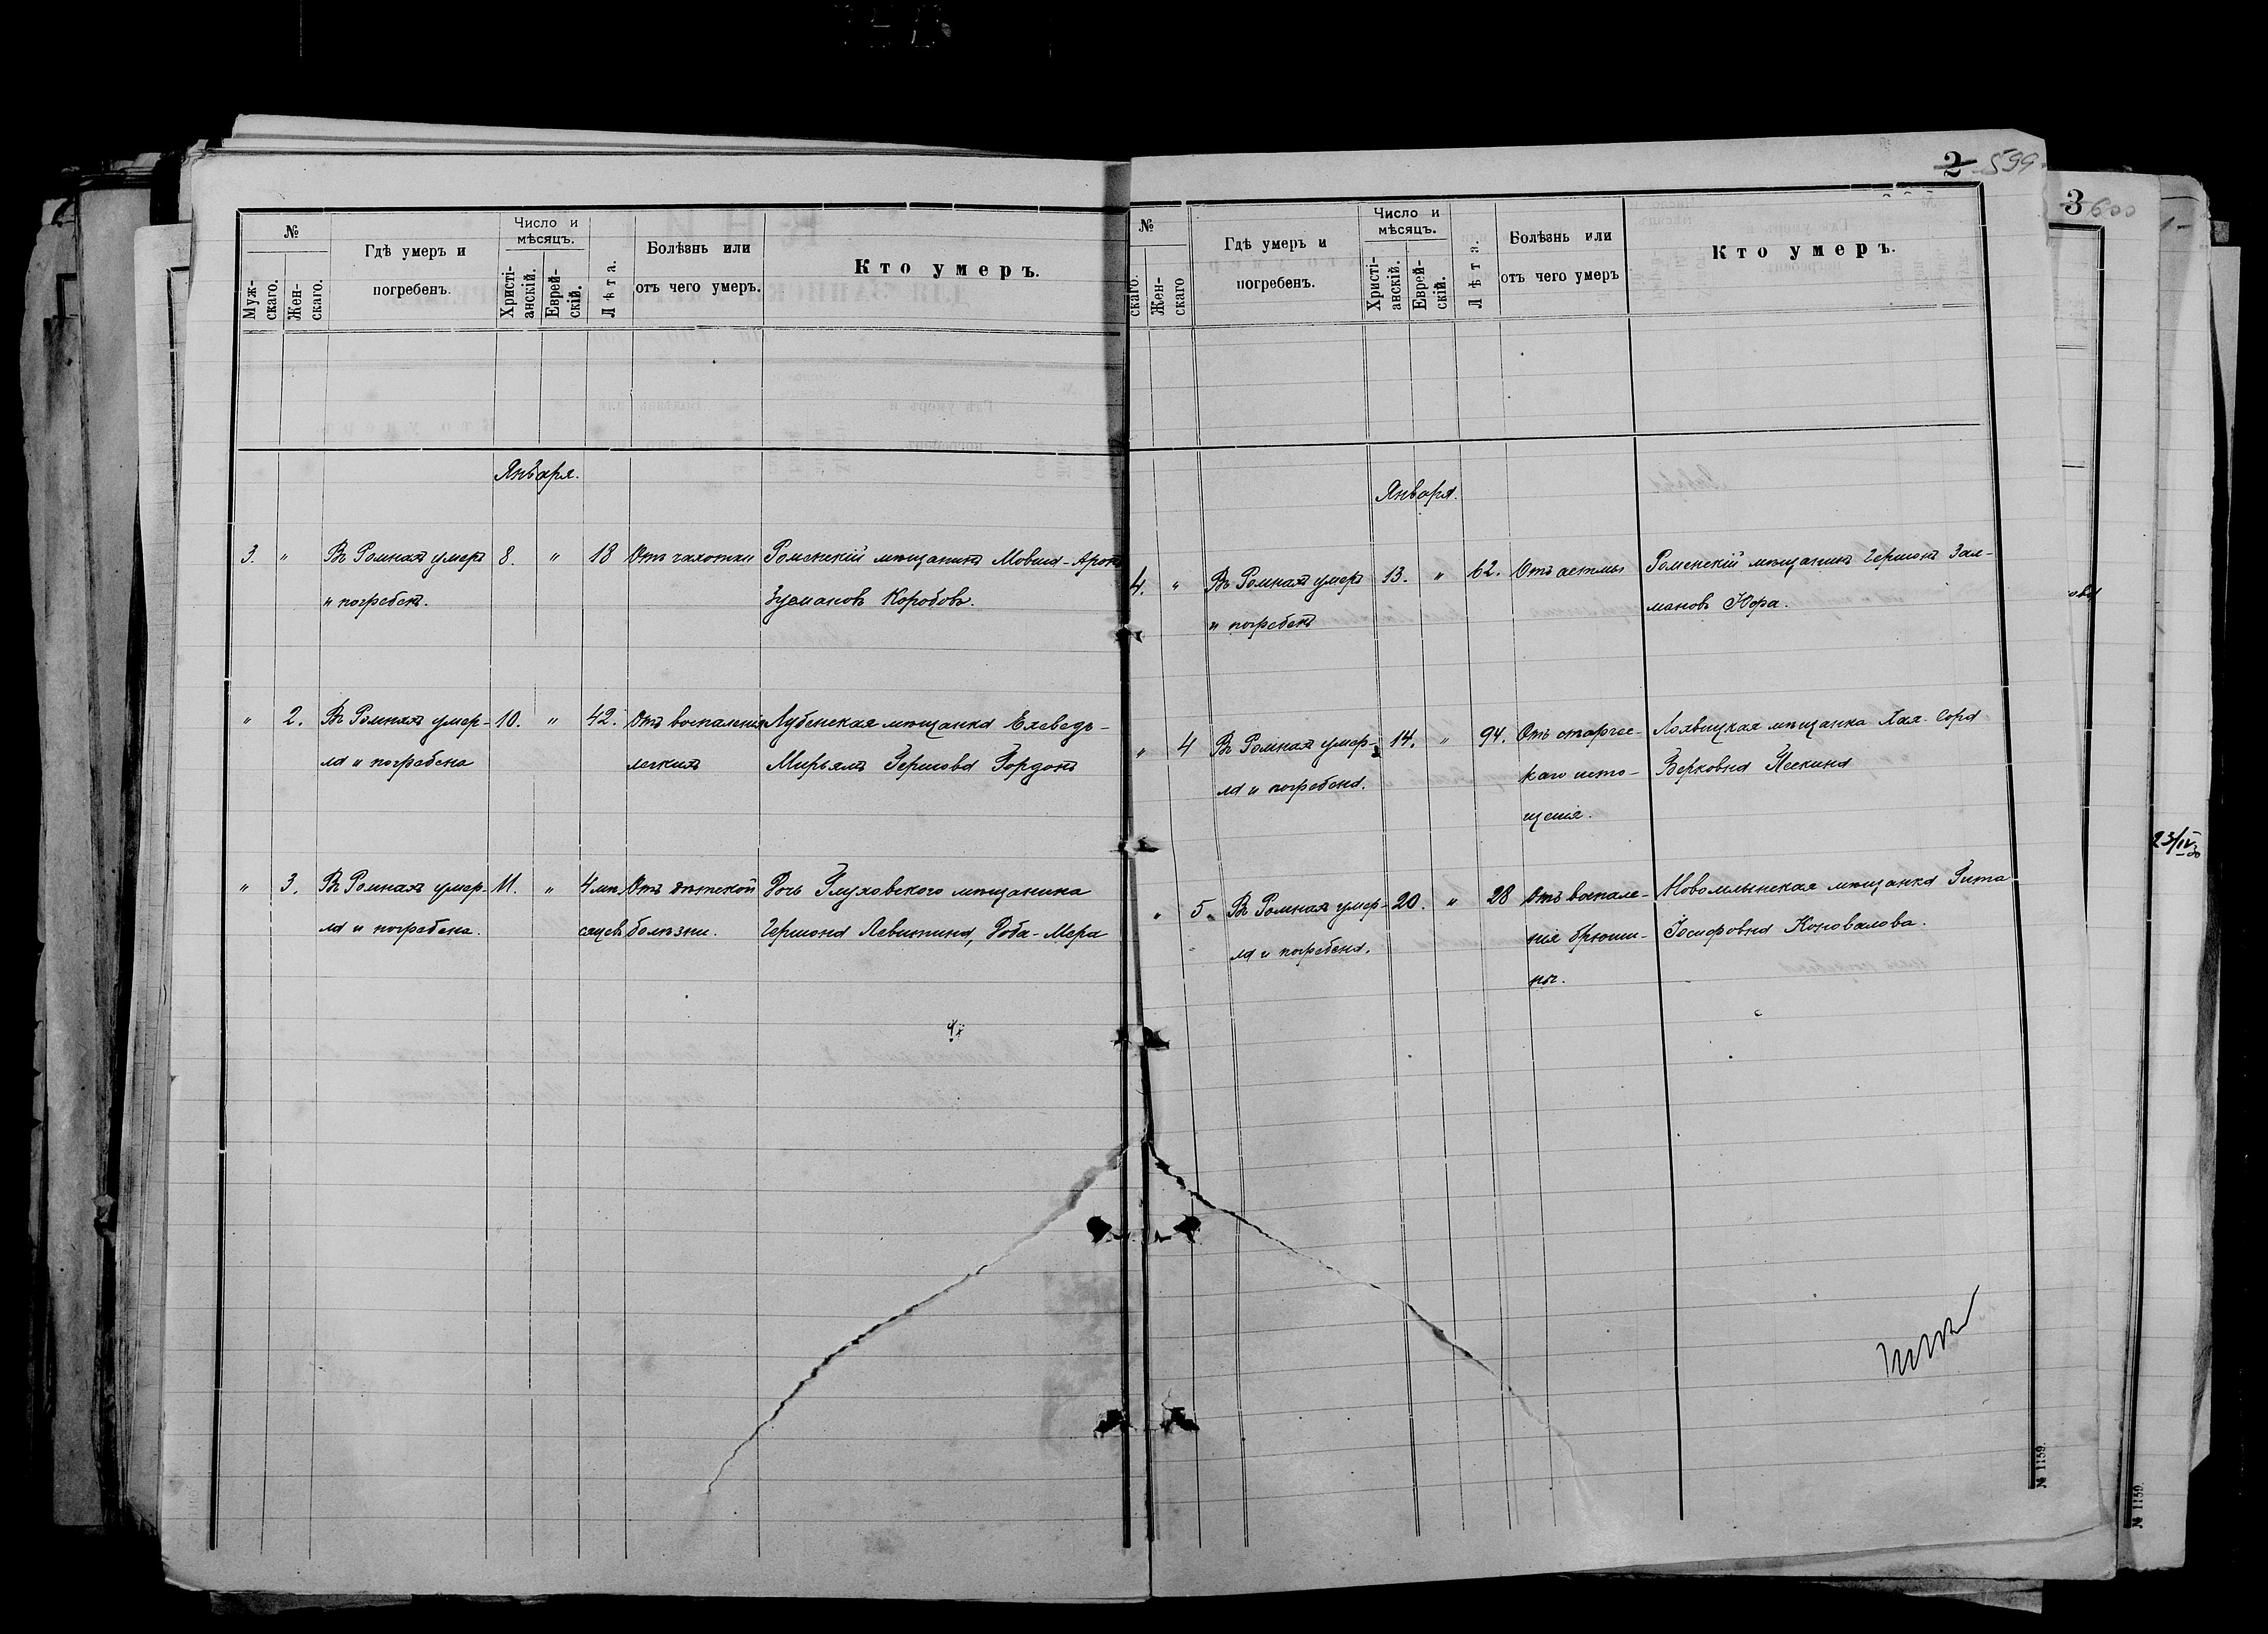 №
Муж-
скаго.
Жен-
скаго.
Гдѣ умеръ и
погребенъ.
Число и
мѣсяцъ.
Христі-
анскій.
Еврей-
скій.
Лѣта.
Болѣзнь или
отъ чего умеръ.
Кто умеръ.
Января.
3. " Въ Ромнахъ умеръ 8. " 18 Отъ чахотки Роменскій мѣщанинъ Мовша-Аронъ
и погребенъ. Зусмановъ Коробовъ.
" 2. Въ Ромнахъ умер- 10. " 42. Отъ воспаленія Лубенская мѣщанка Ехеведъ-
ла и погребена легкихъ Мирьямъ Гершова Гордонъ
" 3. Въ Ромнахъ умер- 11. " 4 мѣ Отъ дѣтской Дочь Глуховского мѣщанина
ла и погребена. сяцевъ болѣзни. Гершона Левитина, Доба-Мера
2 599
№
скаго.
Жен-
скаго
Гдѣ умеръ и
погребенъ.
Число и
мѣсяцъ.
Христі-
анскій.
Еврей-
скій.
Лѣта.
Болѣзнь или
отъ чего умеръ
Кто умеръ.
Января.
4. " Въ Ромнахъ умеръ 13. " 62. Отъ астмы Роменскій мѣщанинъ Гершонъ Зал-
и погребенъ мановъ Юра.
" 4 Въ Ромнахъ умер- 14. " 94. Отъ старчес- Лохвицкая мѣщанка Хая-Сора
ла и погребена. каго исто- Берковна Ческина
щенія.
" 5. Въ Ромнахъ умер- 20. " 28 Отъ воспале- Новомлынская мѣщанка Гита
ла и погребена. нія брюши- Іосифовна Коновалова.
ны.
№ 1159.
3 600
23/IV
№ 1159.